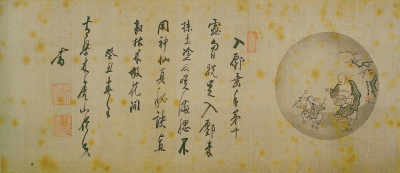 入鄽垂手第十
露胸跣足入鄽來
抹土塗灰笑滿腮不
用神仙真秘訣直
教枯木放花開
癸丑春
書